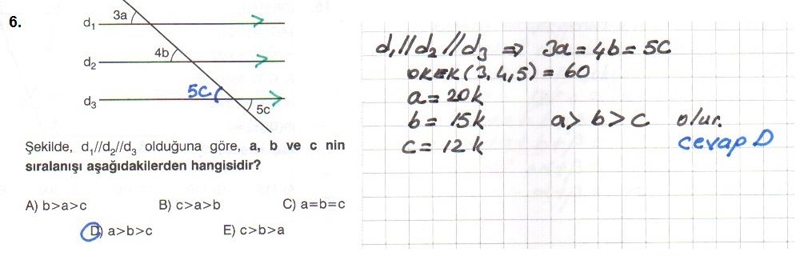 6.
d₁ 3a
d₂ 4b
d₃ 5c 5c
Şekilde, d₁//d₂//d₃ olduğuna göre, a, b ve c nin
sıralanışı aşağıdakilerden hangisidir?
A) b>a>c B) c>a>b C) a=b=c
D) a>b>c E) c>b>a
d₁//d₂//d₃ ⇒ 3a=4b=5c
OKEK(3,4,5)=60
a=20k
b=15k a>b>c olur.
c=12k cevap D